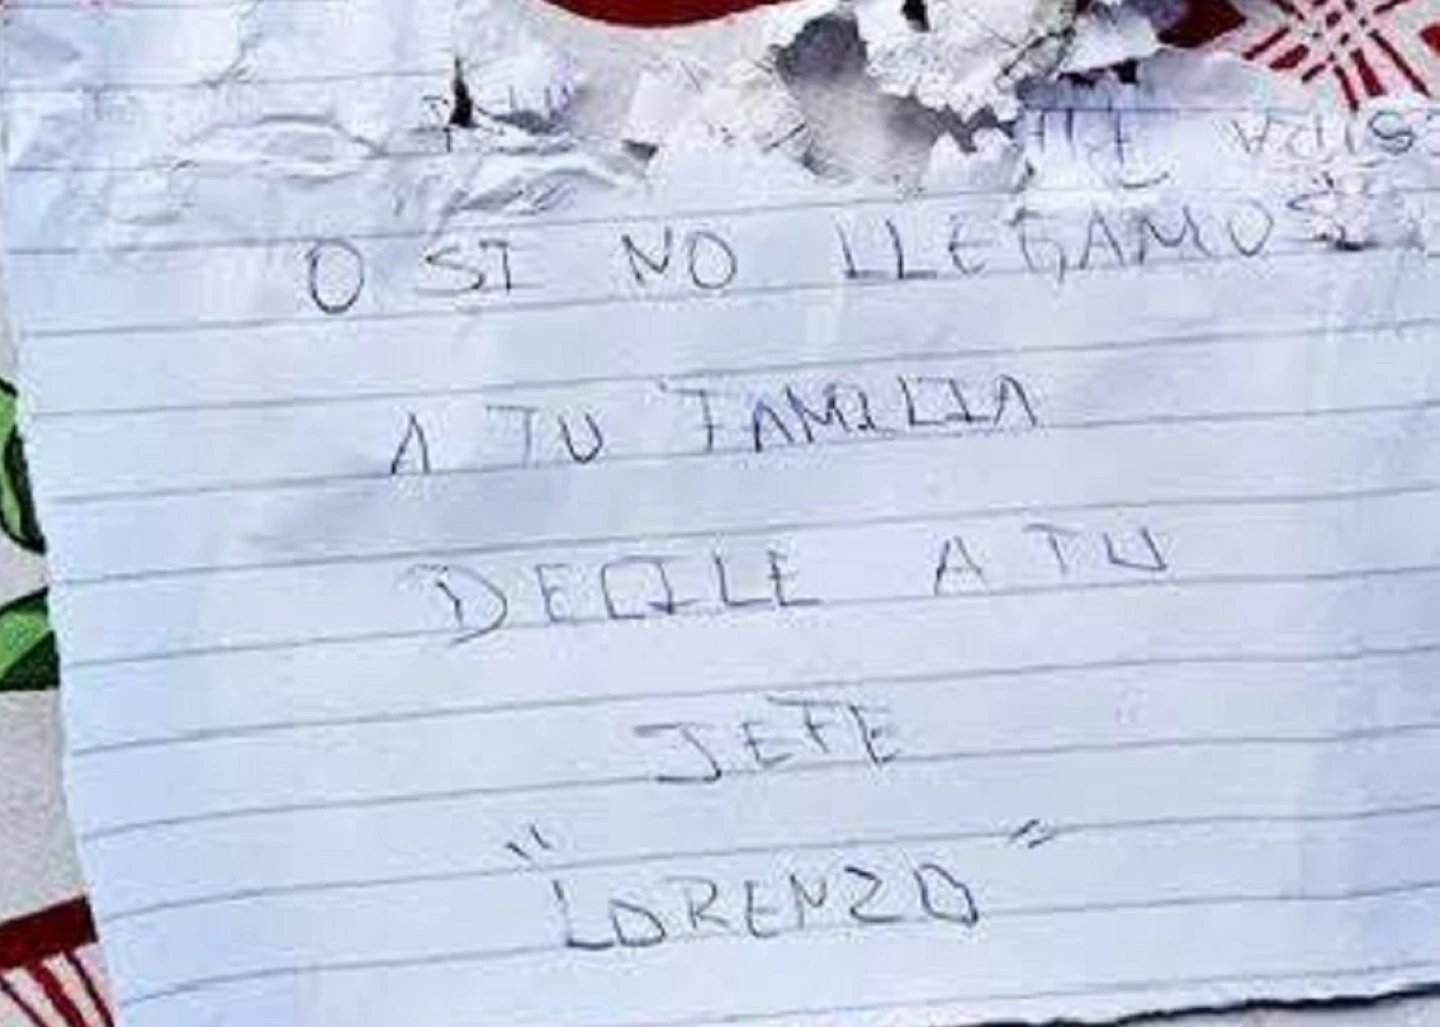 O SI NO LLEGAMOS
A TU FAMILIA
DECILE A TU
JEFE
"LORENZO"